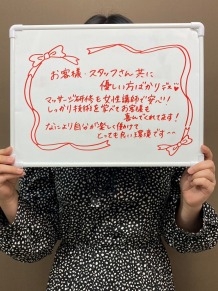 お客様・スタッフさん共に
優しい方ばかりです♥
マッサージ研修も女性講師で安心!!
しっかり技術を学べてお客様も
喜んでくれてます!
なにより自分が楽しく働けて
とっても良い環境です^^